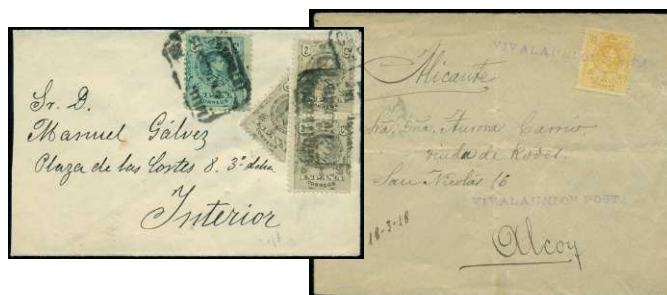 Sr. D.
Manuel Gálvez
Plaza de las Cortes 8. 3º dcha
Interior
ESPAÑA
CORREOS
VIVALAUNION POSTA
Alicante
Sra. Dña. Aurora Carrió
viuda de Rodes.
San Nicolás 16
VIVALAUNION POSTA
18-3-18
Alcoy